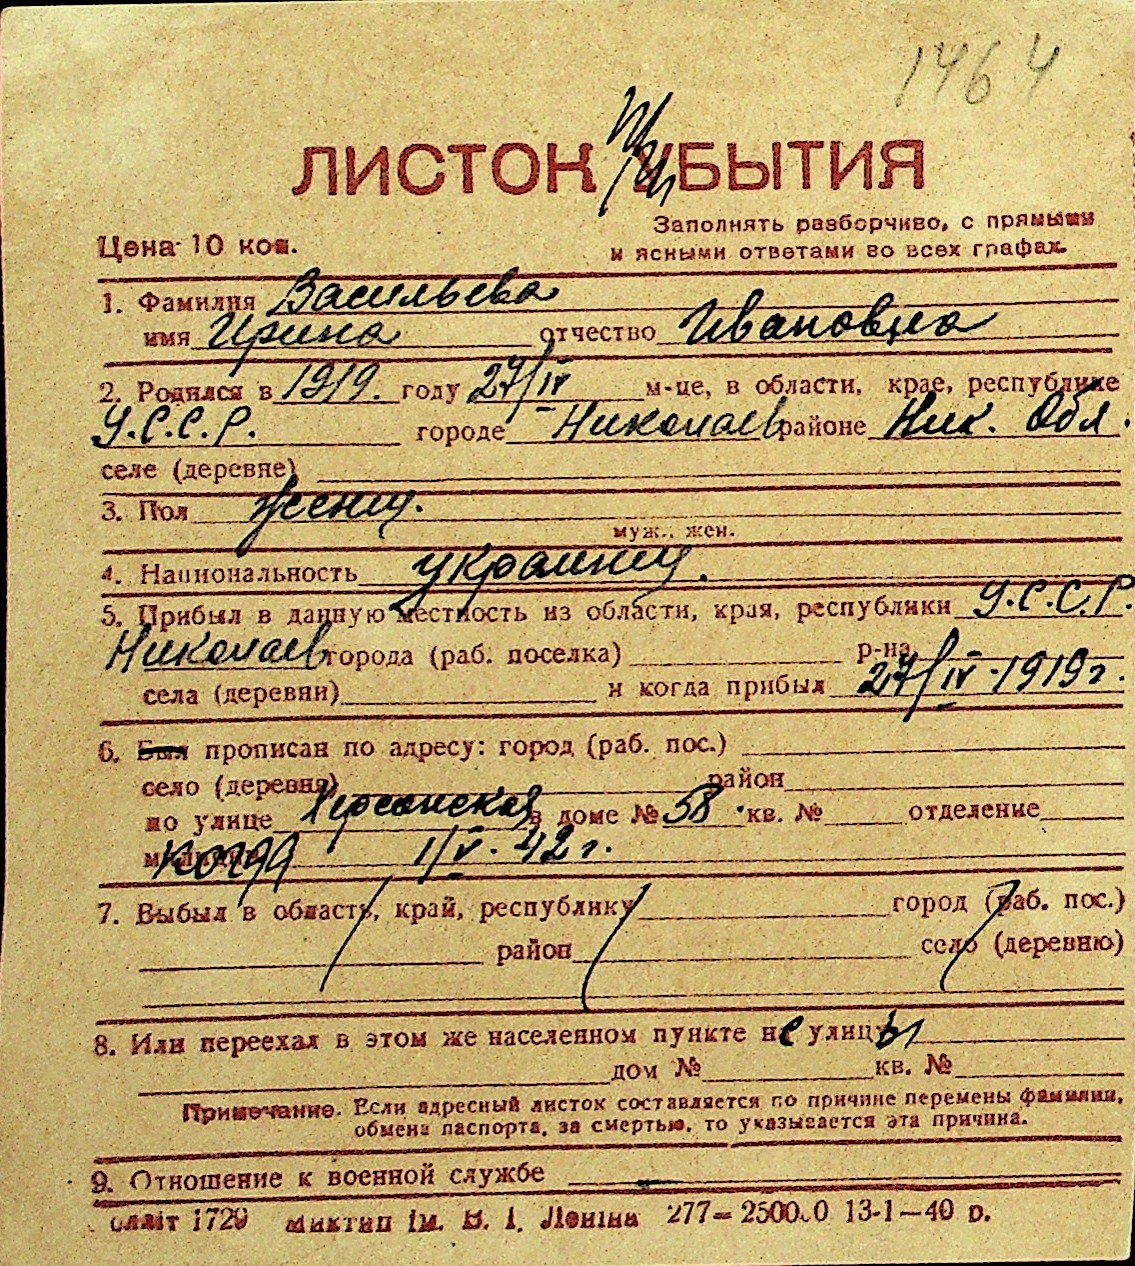 1464
ЛИСТОК УБЫТИЯ
Цена 10 коп.
Заполнять разборчиво, с прямыми
и ясными ответами во всех графах.
1. Фамилия Васильева
имя Ирина отчество Ивановна
2. Родился в 1919. году 27/IV м-це, в области, крае, республике
У.С.С.Р. городе Николаев районе Ник. Обл.
селе (деревне)
3. Пол женщ.
муж., жен.
4. Национальность украинц.
5. Прибыл в данную местность из области, края, республики У.С.С.Р.
Николаев города (раб. поселка) р-на
села (деревни) и когда прибыл 27/IV-1919г.
6. Был прописан по адресу: город (раб. пос.)
село (деревня) район
по улице Херсонская в доме № 58 кв. № отделение
когда 1/V-42г.
7. Выбыл в область, край, республику город (раб. пос.)
район село (деревню)
8. Или переехал в этом же населенном пункте не улицы
дом № кв. №
Примечание. Если адресный листок составляется по причине перемены фамилии,
обмена паспорта, за смертью, то указывается эта причина.
9. Отношение к военной службе
1720 ім. В. І. Леніна 277— 13-1—40 р.